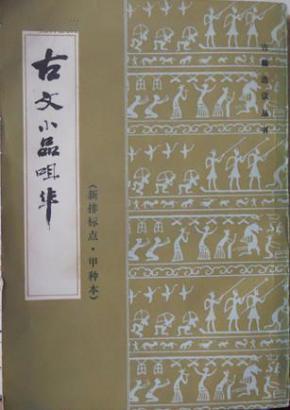 古文小品咀华
（新排标点·甲种本）